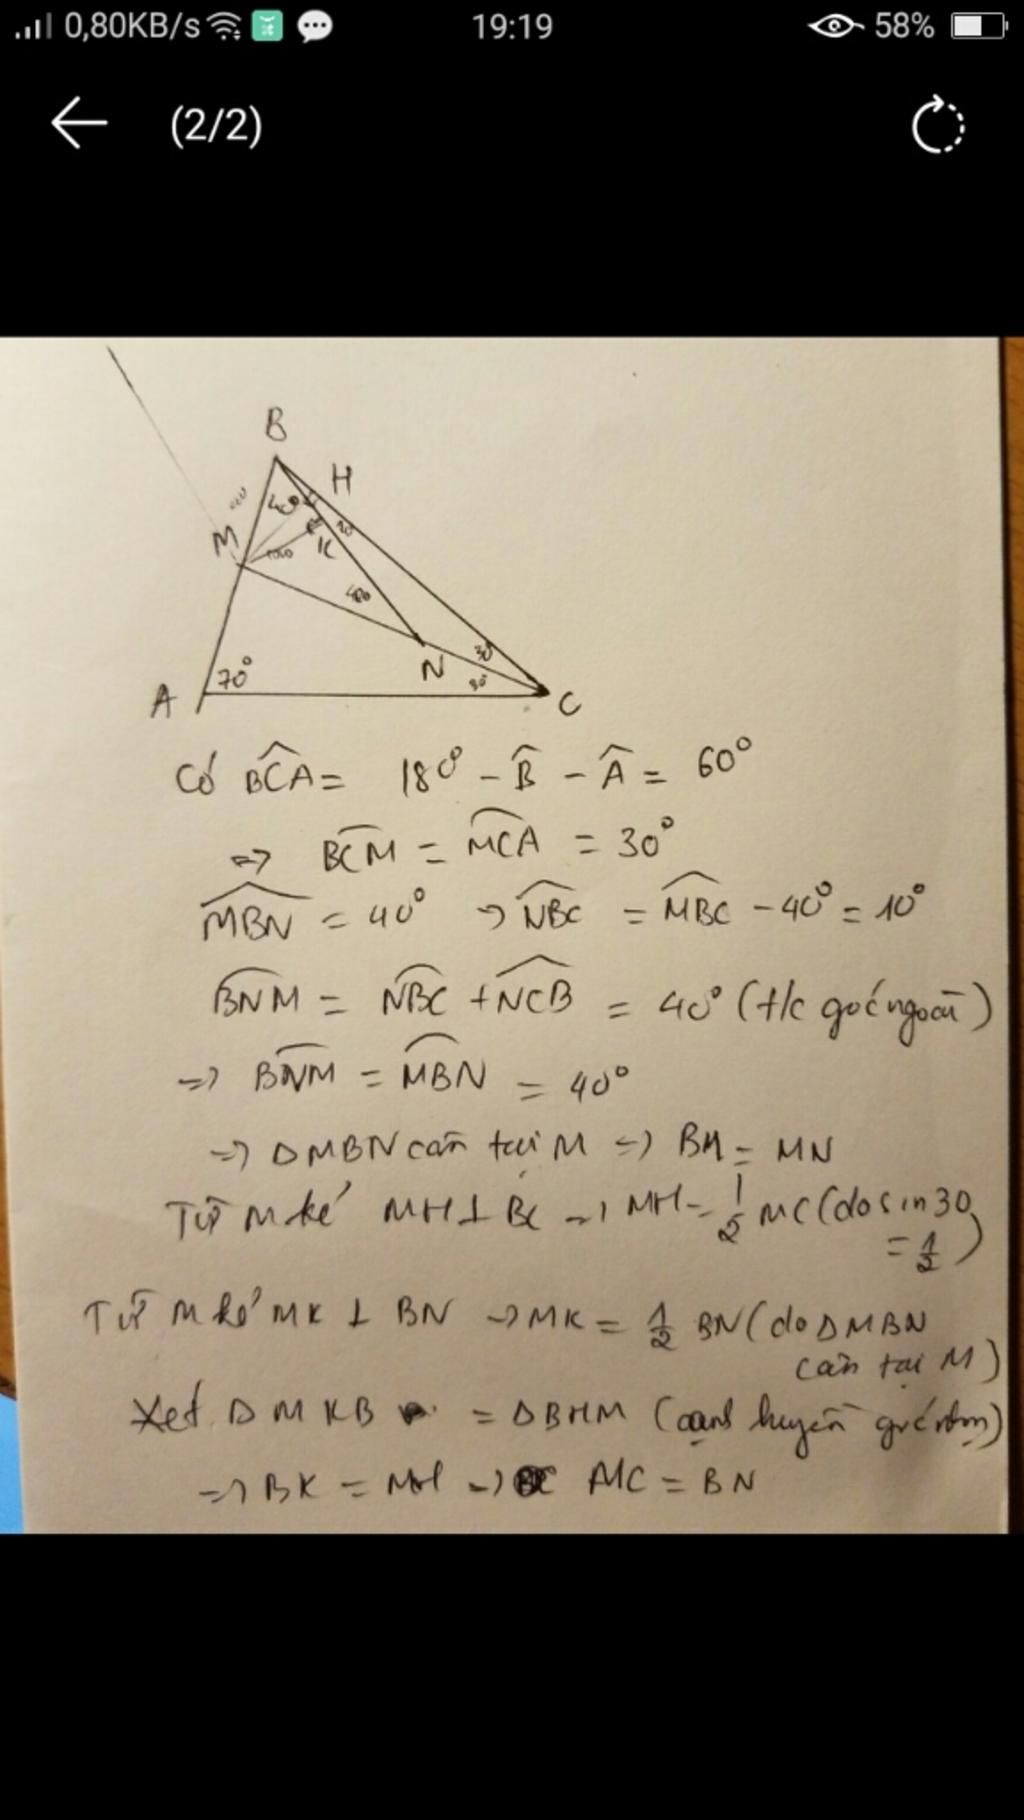 0,80KB/s 19:19 58%
(2/2)
B
H
40°
M
K
N
30°
30°
A 70°
C
Có BĈA = 180° - B̂ - Â = 60°
=> BĈM = MĈA = 30°
MB̂N = 40° → NB̂C = MB̂C - 40° = 10°
BN̂M = NB̂C + NĈB = 40° (t/c góc ngoài)
=> BN̂M = MB̂N = 40°
=> ΔMBN cân tại M => BM = MN
Từ M kẻ MH ⊥ BC => MH = 1/2 MC (do sin 30
= 1/2)
Từ M kẻ MK ⊥ BN → MK = 1/2 BN (do ΔMBN
cân tại M)
Xét ΔMKB = ΔBHM (cạnh huyền góc nhọn)
=> BK = MH => MC = BN